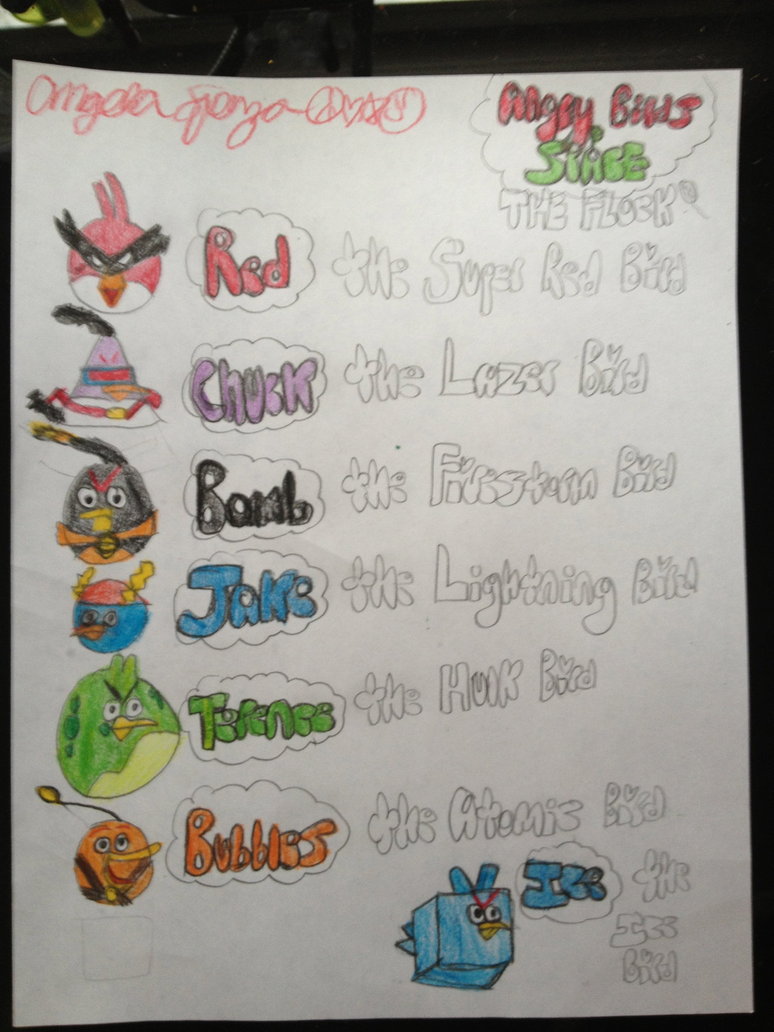 Angela
Angry Birds
Space
THE Flock
Red the Super Red Bird
Chuck the Lazer Bird
Bomb the Firestorm Bird
Jake the Lightning Bird
Terence the Hulk Bird
Bubbles the Atomic Bird
Ice the
Ice
Bird